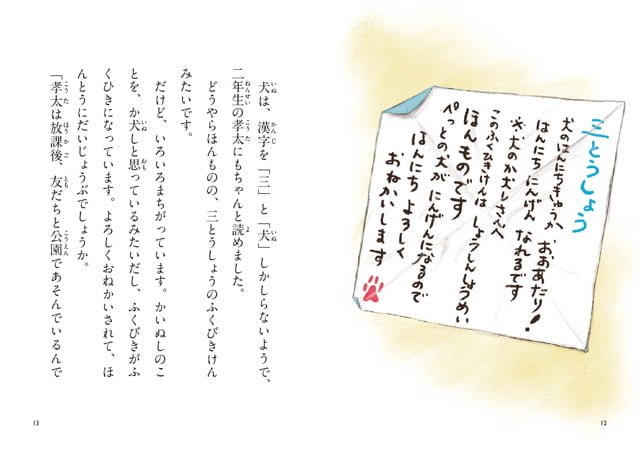 三とうしょう
犬のはんにちきゅうか おおあたり！
はんにち にんげんへ なれるです
※犬のか犬しさんへ
このふくひきけんは しょうしんしょうめい
ほんものです
ぺっとの犬が にんげんになるので
はんにち よろしく
おねかいします
12
いぬ かんじ
犬は、漢字を「三」と「犬」しかしらないようで、
ねんせい こうた よ
二年生の孝太にもちゃんと読めました。
どうやらほんものの、三とうしょうのふくびきけん
みたいです。
だけど、いろいろまちがっています。かいぬしのこ
いぬ おも
とを、か犬しと思っているみたいだし、ふくびきがふ
くひきになっています。よろしくおねかいされて、ほ
んとうにだいじょうぶでしょうか。
こうた ほうかご とも こうえん
「孝太は放課後、友だちと公園であそんでいるんで
13